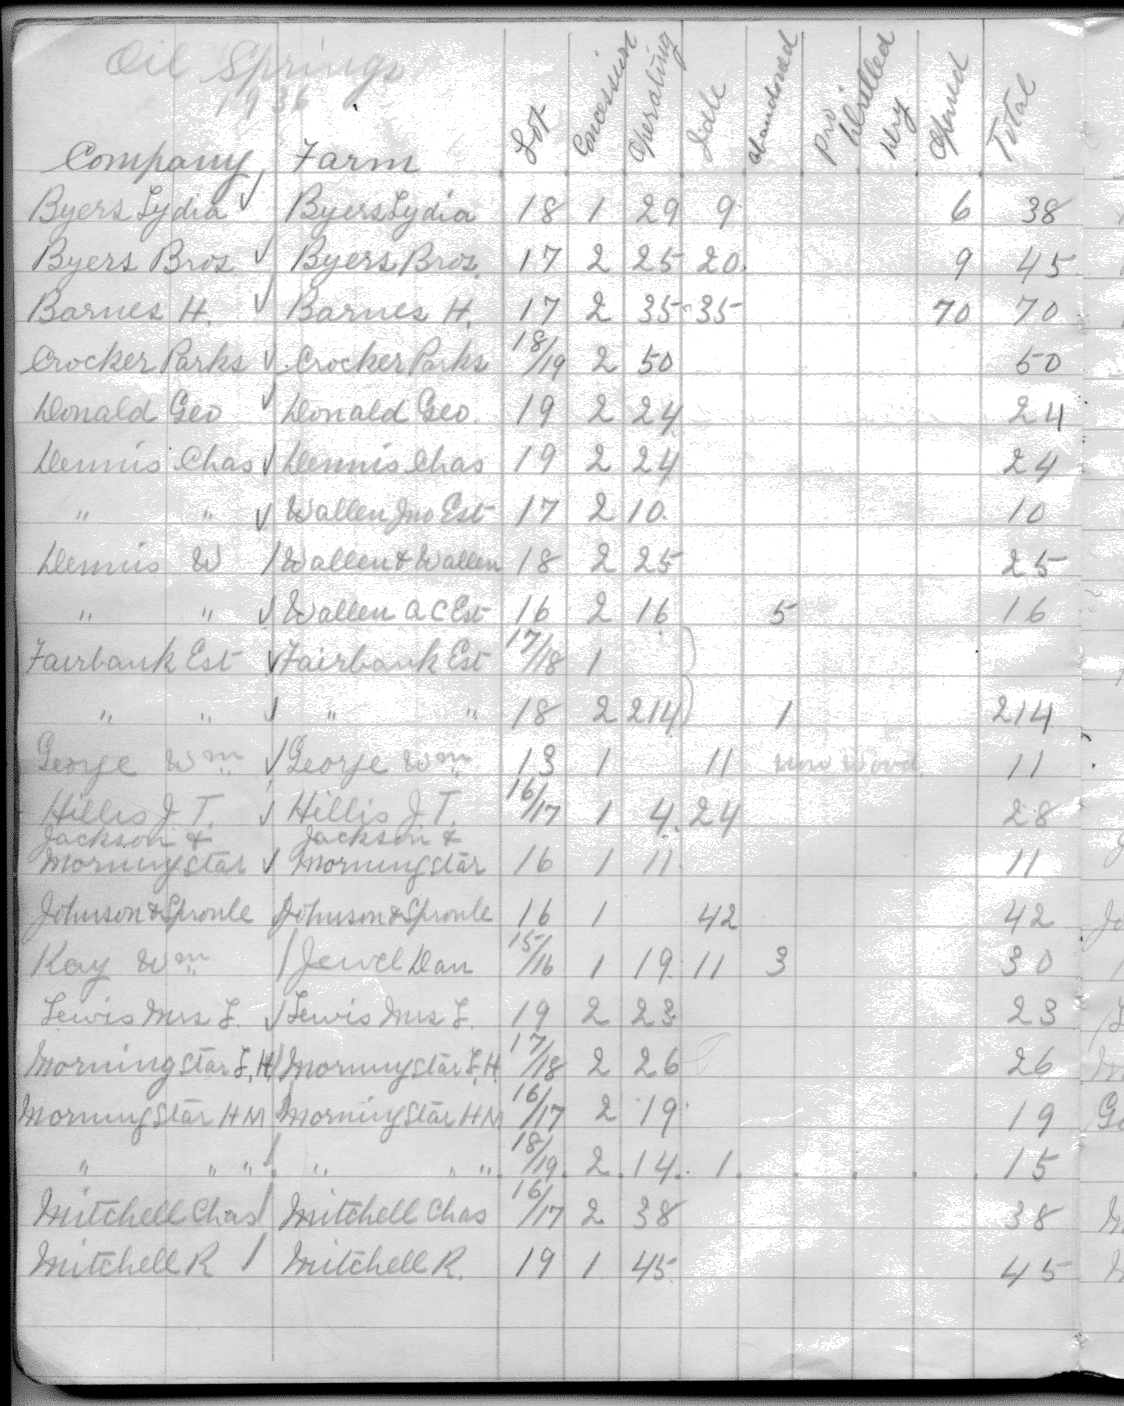 Oil Springs
1936
Company Farm Lot Concession Operating Idle Abandoned Pro. Drilled Dry Opened Total
Byers Lydia ✓ Byers Lydia 18 1 29 9 6 38
Byers Bros ✓ Byers Bros. 17 2 25 20 9 45
Barnes H. ✓ Barnes H. 17 2 35 35 70 70
Crocker Parks ✓ Crocker Parks 18/19 2 50 50
Donald Geo ✓ Donald Geo. 19 2 24 24
Dennis Chas ✓ Dennis Chas 19 2 24 24
" " ✓ Wallen Jno Est 17 2 10 10
Dennis W / Wallen & Wallen 18 2 25 25
" " ✓ Wallen A C Est 16 2 16 5 16
Fairbank Est ✓ Fairbank Est 17/18 1
" " ✓ " " 18 2 214 1 214
George Wm ✓ George Wm 13 1 11 now Wood 11
Hillis J. T. ✓ Hillis J. T. 16/17 1 4 24 28
Jackson & Jackson &
Morningstar ✓ Morningstar 16 1 11 11
Johnson & Sproule Johnson & Sproule 16 1 42 42
Kay Wm / Jewel Dan 15/16 1 19 11 3 30
Lewis Mrs L. ✓ Lewis Mrs L. 19 2 23 23
Morningstar L. H. / Morningstar L. H. 17/18 2 26 26
Morningstar H M Morningstar H M 16/17 2 19 19
" " " / " " 18/19 2 14 1 15
Mitchell Chas / Mitchell Chas 16/17 2 38 38
Mitchell R / Mitchell R. 19 1 45 45